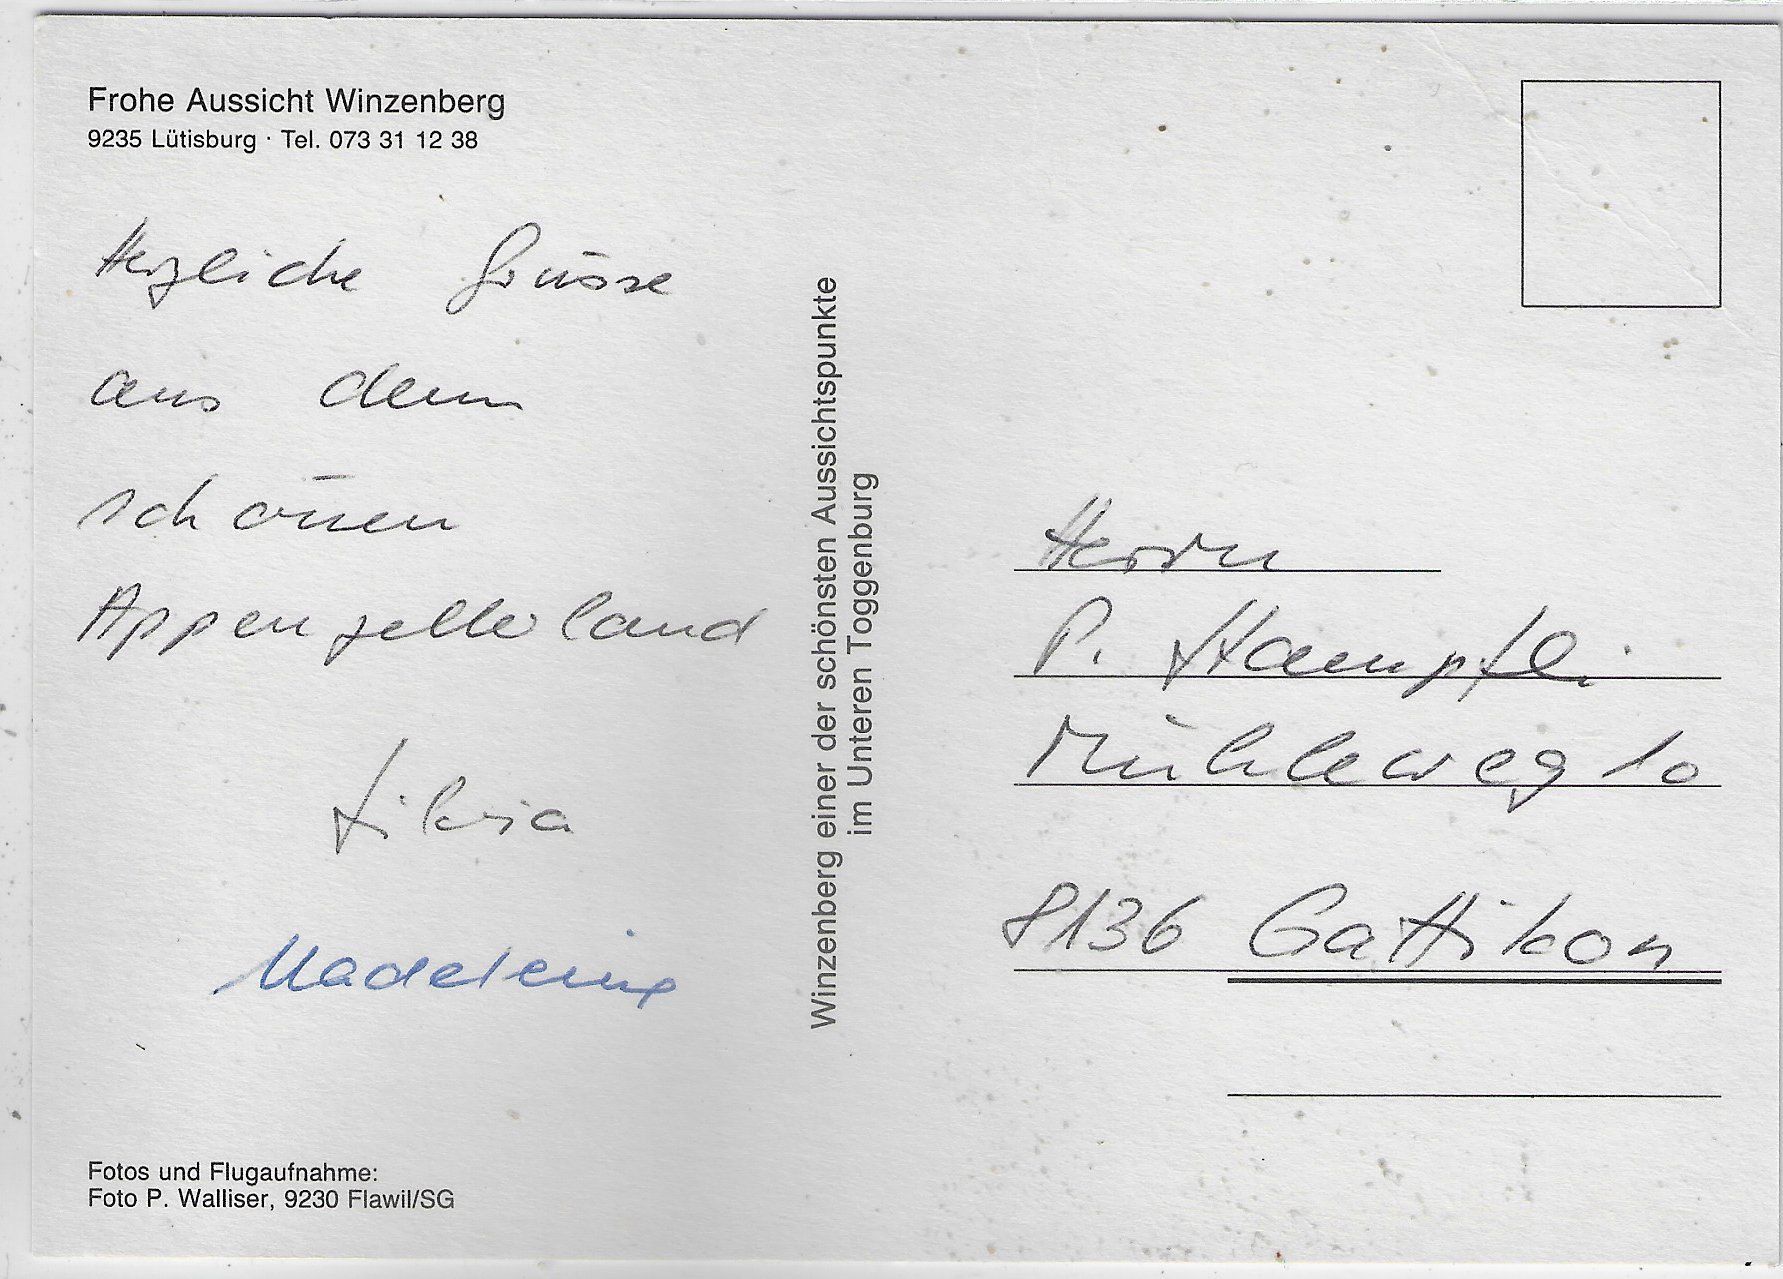 Frohe Aussicht Winzenberg
9235 Lütisburg · Tel. 073 31 12 38
Herzliche Grüsse
aus dem
schönen
Appenzellerland
Silvia
Madeleine
Fotos und Flugaufnahme:
Foto P. Walliser, 9230 Flawil/SG
Winzenberg einer der schönsten Aussichtspunkte
im Unteren Toggenburg
Herrn
P. Haempfli
Mühleweg 10
8136 Gattikon